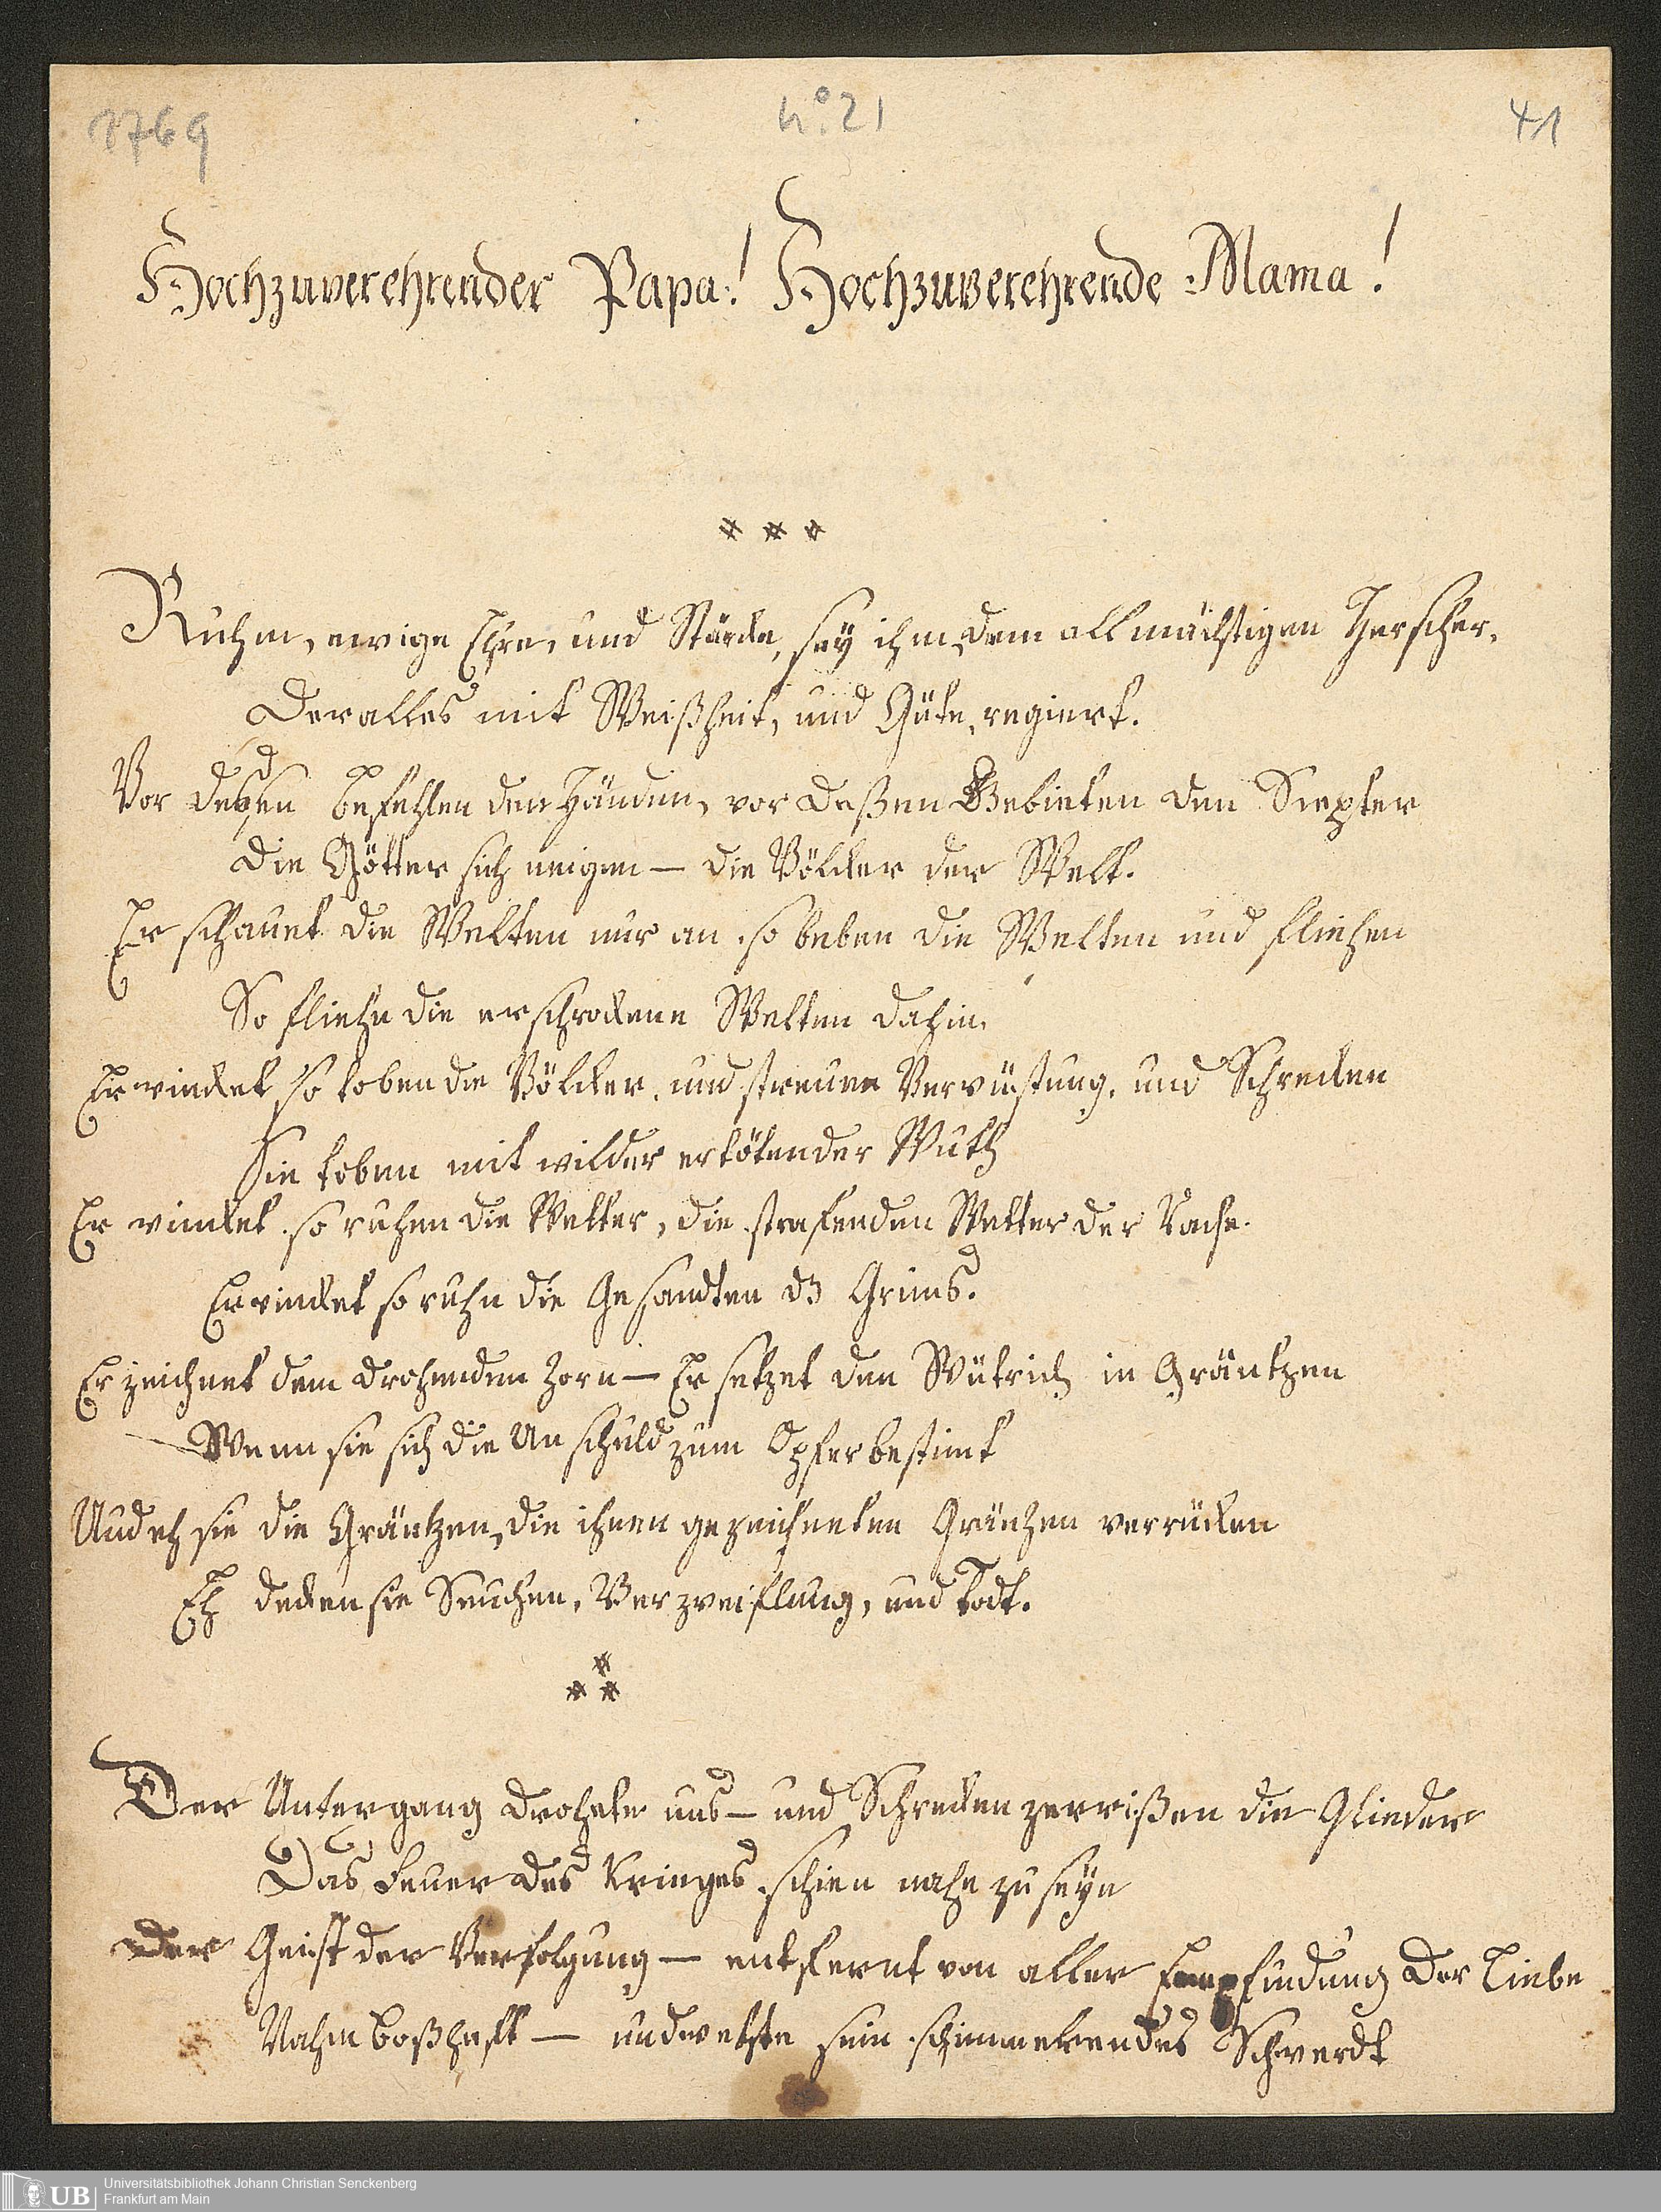 1769
n.° 21
41
Hochzuverehrender Papa! Hochzuverehrende Mama!
* * *
Ruhm, ewige Ehre, und Stärcke, sey ihm, dem allmächtigen Herscher,
Der alles mit Weißheit, und Güte, regiert.
Vor deßen befehlenden Händen, vor deßen Gebieten den Siepter
die Götter sich neigen — die Völcker der Welt.
Er schauet die Welten nur an, so beben die Welten und fliehen
So fliehn die erschrockene Welten dahin.
Er wincket so toben die Völcker, und streuen Verwüstung, und Schrecken
Sie toben mit wilder ertötender Wuth
Er wincket so ruhen die Wetter, die strafenden Wetter der Rache.
Er wincket so ruhn die Gesandten des Grims.
Er zeichnet dem drohenden Zorn — Er setzet den Wütrich in Gräntzen
Wenn sie sich die Unschuld zum Opfer bestimt
Und eh sie die Gräntzen, die ihnen gezeichneten Gränzen verrücken
Eh decken sie Seuchen, Verzweiflung, und Todt.
* * *
Der Untergang drohete uns — und Schrecken zerrißen die Glieder
Das Feuer des Krieges schien nahe zu seyn
Der Geist der Verfolgung — entfernt von aller Empfindung der Liebe
Nahm boßhaft — und wetzte sein schimmerendes Schwerdt
UB
Universitätsbibliothek Johann Christian Senckenberg
Frankfurt am Main